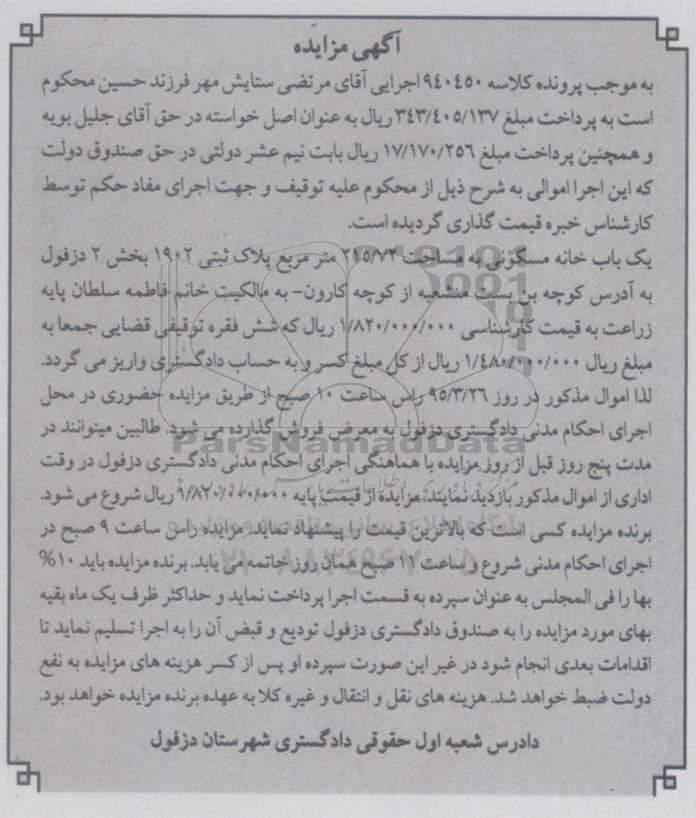 آگهی مزایده
به موجب پرونده کلاسه ۹۴۰۴۵۰ اجرایی آقای مرتضی ستایش مهر فرزند حسین محکوم
است به پرداخت مبلغ ۳۴۳/۴۰۵/۱۳۷ ریال به عنوان اصل خواسته در حق آقای جلیل بویه
و همچنین پرداخت مبلغ ۱۷/۱۷۰/۲۵۶ ریال بابت نیم عشر دولتی در حق صندوق دولت
که این اجرا اموالی به شرح ذیل از محکوم علیه توقیف و جهت اجرای مفاد حکم توسط
کارشناس خبره قیمت گذاری گردیده است.
یک باب خانه مسکونی به مساحت ۲۱۵/۷۲ متر مربع پلاک ثبتی ۱۹۰۲ بخش ۲ دزفول
به آدرس کوچه بن بست منشعبه از کوچه کارون- به مالکیت خانم فاطمه سلطان پایه
زراعت به قیمت کارشناسی ۱/۸۲۰/۰۰۰/۰۰۰ ریال که شش فقره توقیفی قضایی جمعا به
مبلغ ریال ۱/٤٨٠/۰۰۰/۰۰۰ ریال از کل مبلغ کسر و به حساب دادگستری واریز می گردد.
لذا اموال مذکور در روز ۹۵/۳/۲۶ راس ساعت ۱۰ صبح از طریق مزایده حضوری در محل
اجرای احکام مدنی دادگستری دزفول به معرض فروش گذارده می شود. طالبین میتوانند در
مدت پنج روز قبل از روز مزایده با هماهنگی اجرای احکام مدنی دادگستری دزفول در وقت
اداری از اموال مذکور بازدید نمایند. مزایده از قیمت پایه ۱/۸۲۰/۰۰۰/۰۰۰ ریال شروع می شود.
برنده مزایده کسی است که بالاترین قیمت را پیشنهاد نماید. مزایده راس ساعت ۹ صبح در
اجرای احکام مدنی شروع و ساعت ۱۱ صبح همان روز خاتمه می یابد. برنده مزایده باید ۱۰%
بها را فی المجلس به عنوان سپرده به قسمت اجرا پرداخت نماید و حداکثر ظرف یک ماه بقیه
بهای مورد مزایده را به صندوق دادگستری دزفول تودیع و قبض آن را به اجرا تسلیم نماید تا
اقدامات بعدی انجام شود در غیر این صورت سپرده او پس از کسر هزینه های مزایده به نفع
دولت ضبط خواهد شد. هزینه های نقل و انتقال و غیره کلا به عهده برنده مزایده خواهد بود.
دادرس شعبه اول حقوقی دادگستری شهرستان دزفول
ParsNamadData